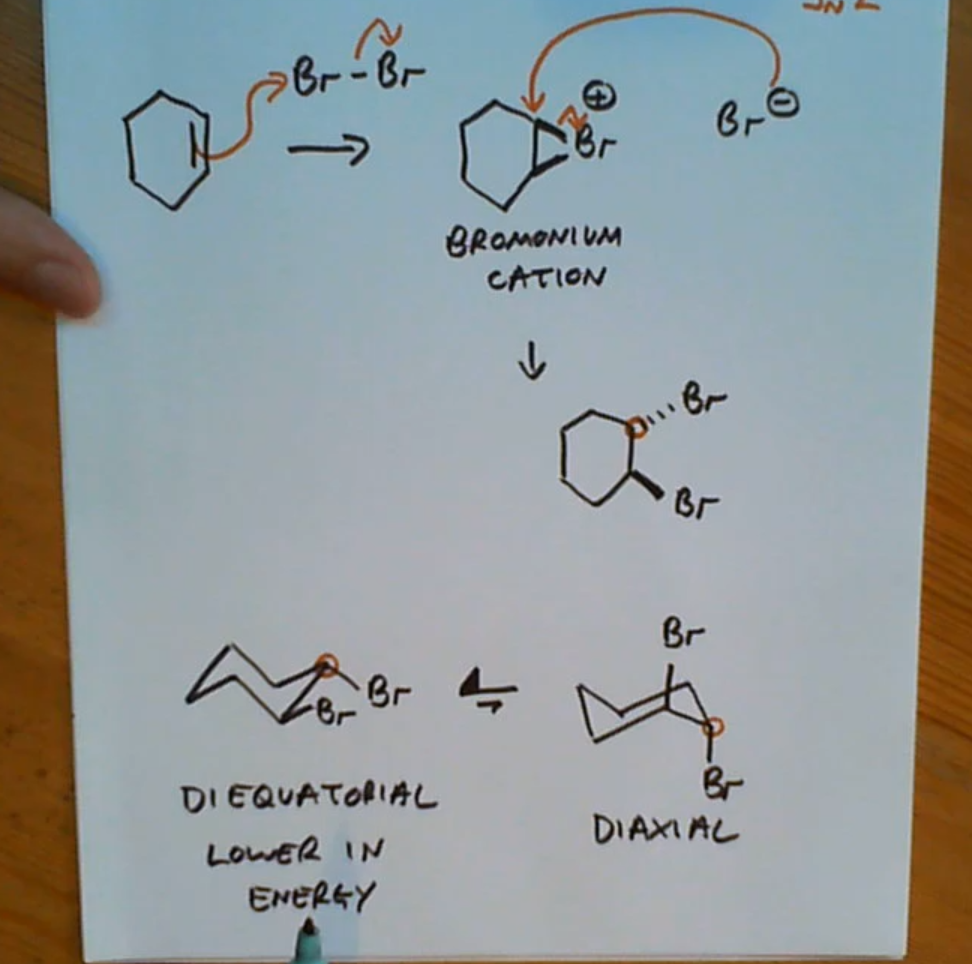 SN2
Br-Br
⊕
Br
Br⊖
BROMONIUM
CATION
Br
Br
Br
Br
Br
Br
DIEQUATORIAL
LOWER IN
ENERGY
DIAXIAL